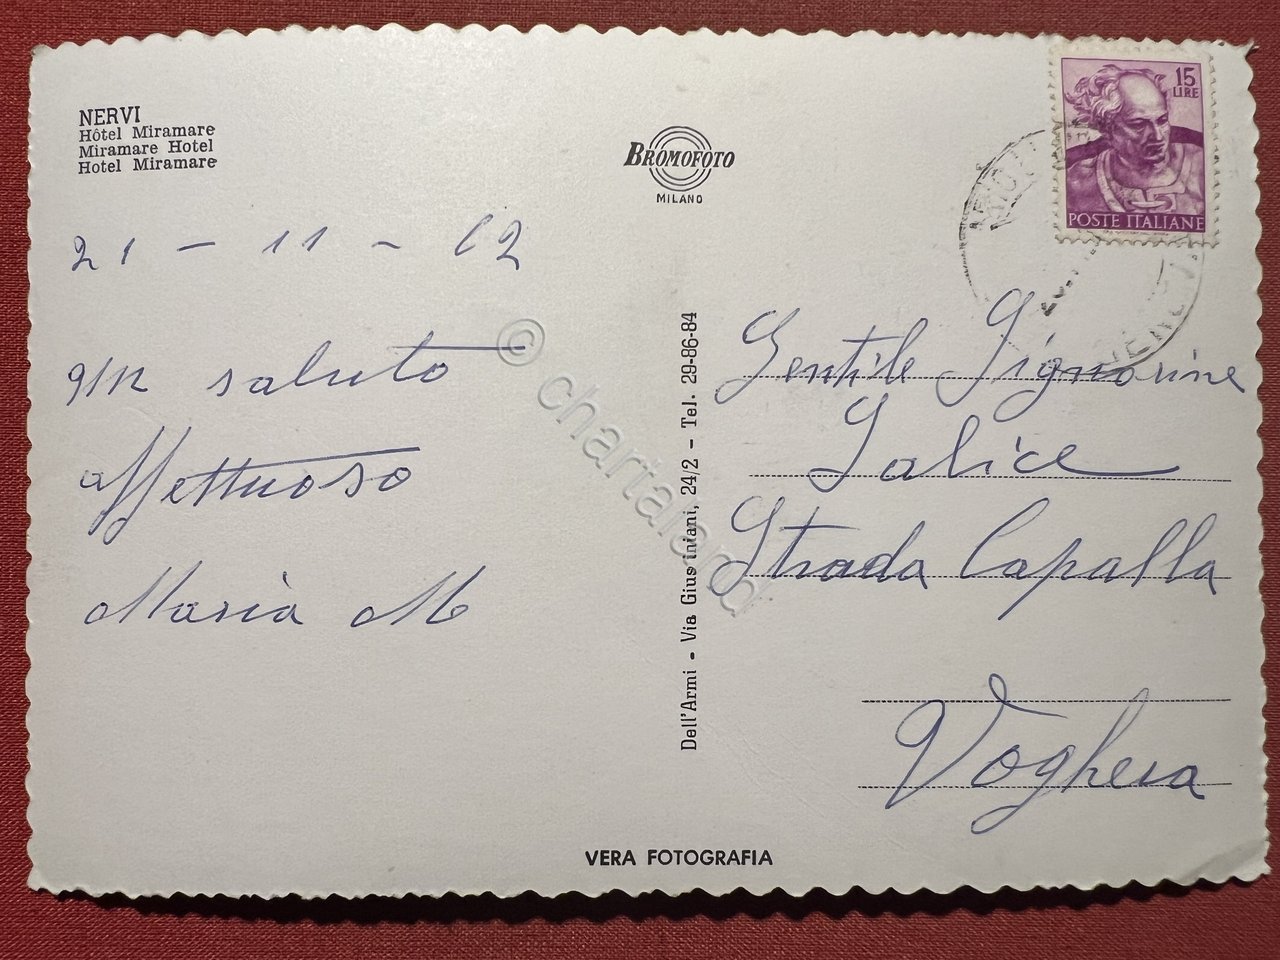 NERVI
Hôtel Miramare
Miramare Hotel
Hotel Miramare
BROMOFOTO
MILANO
15
LIRE
POSTE ITALIANE
21 - 11 - 62
un saluto
affettuoso
Maria M
Dell'Armi - Via Giustiniani, 24/2 - Tel. 29-86-84
Gentile Signorine
Salice
Strada Capalla
Voghera
VERA FOTOGRAFIA
© chartaland